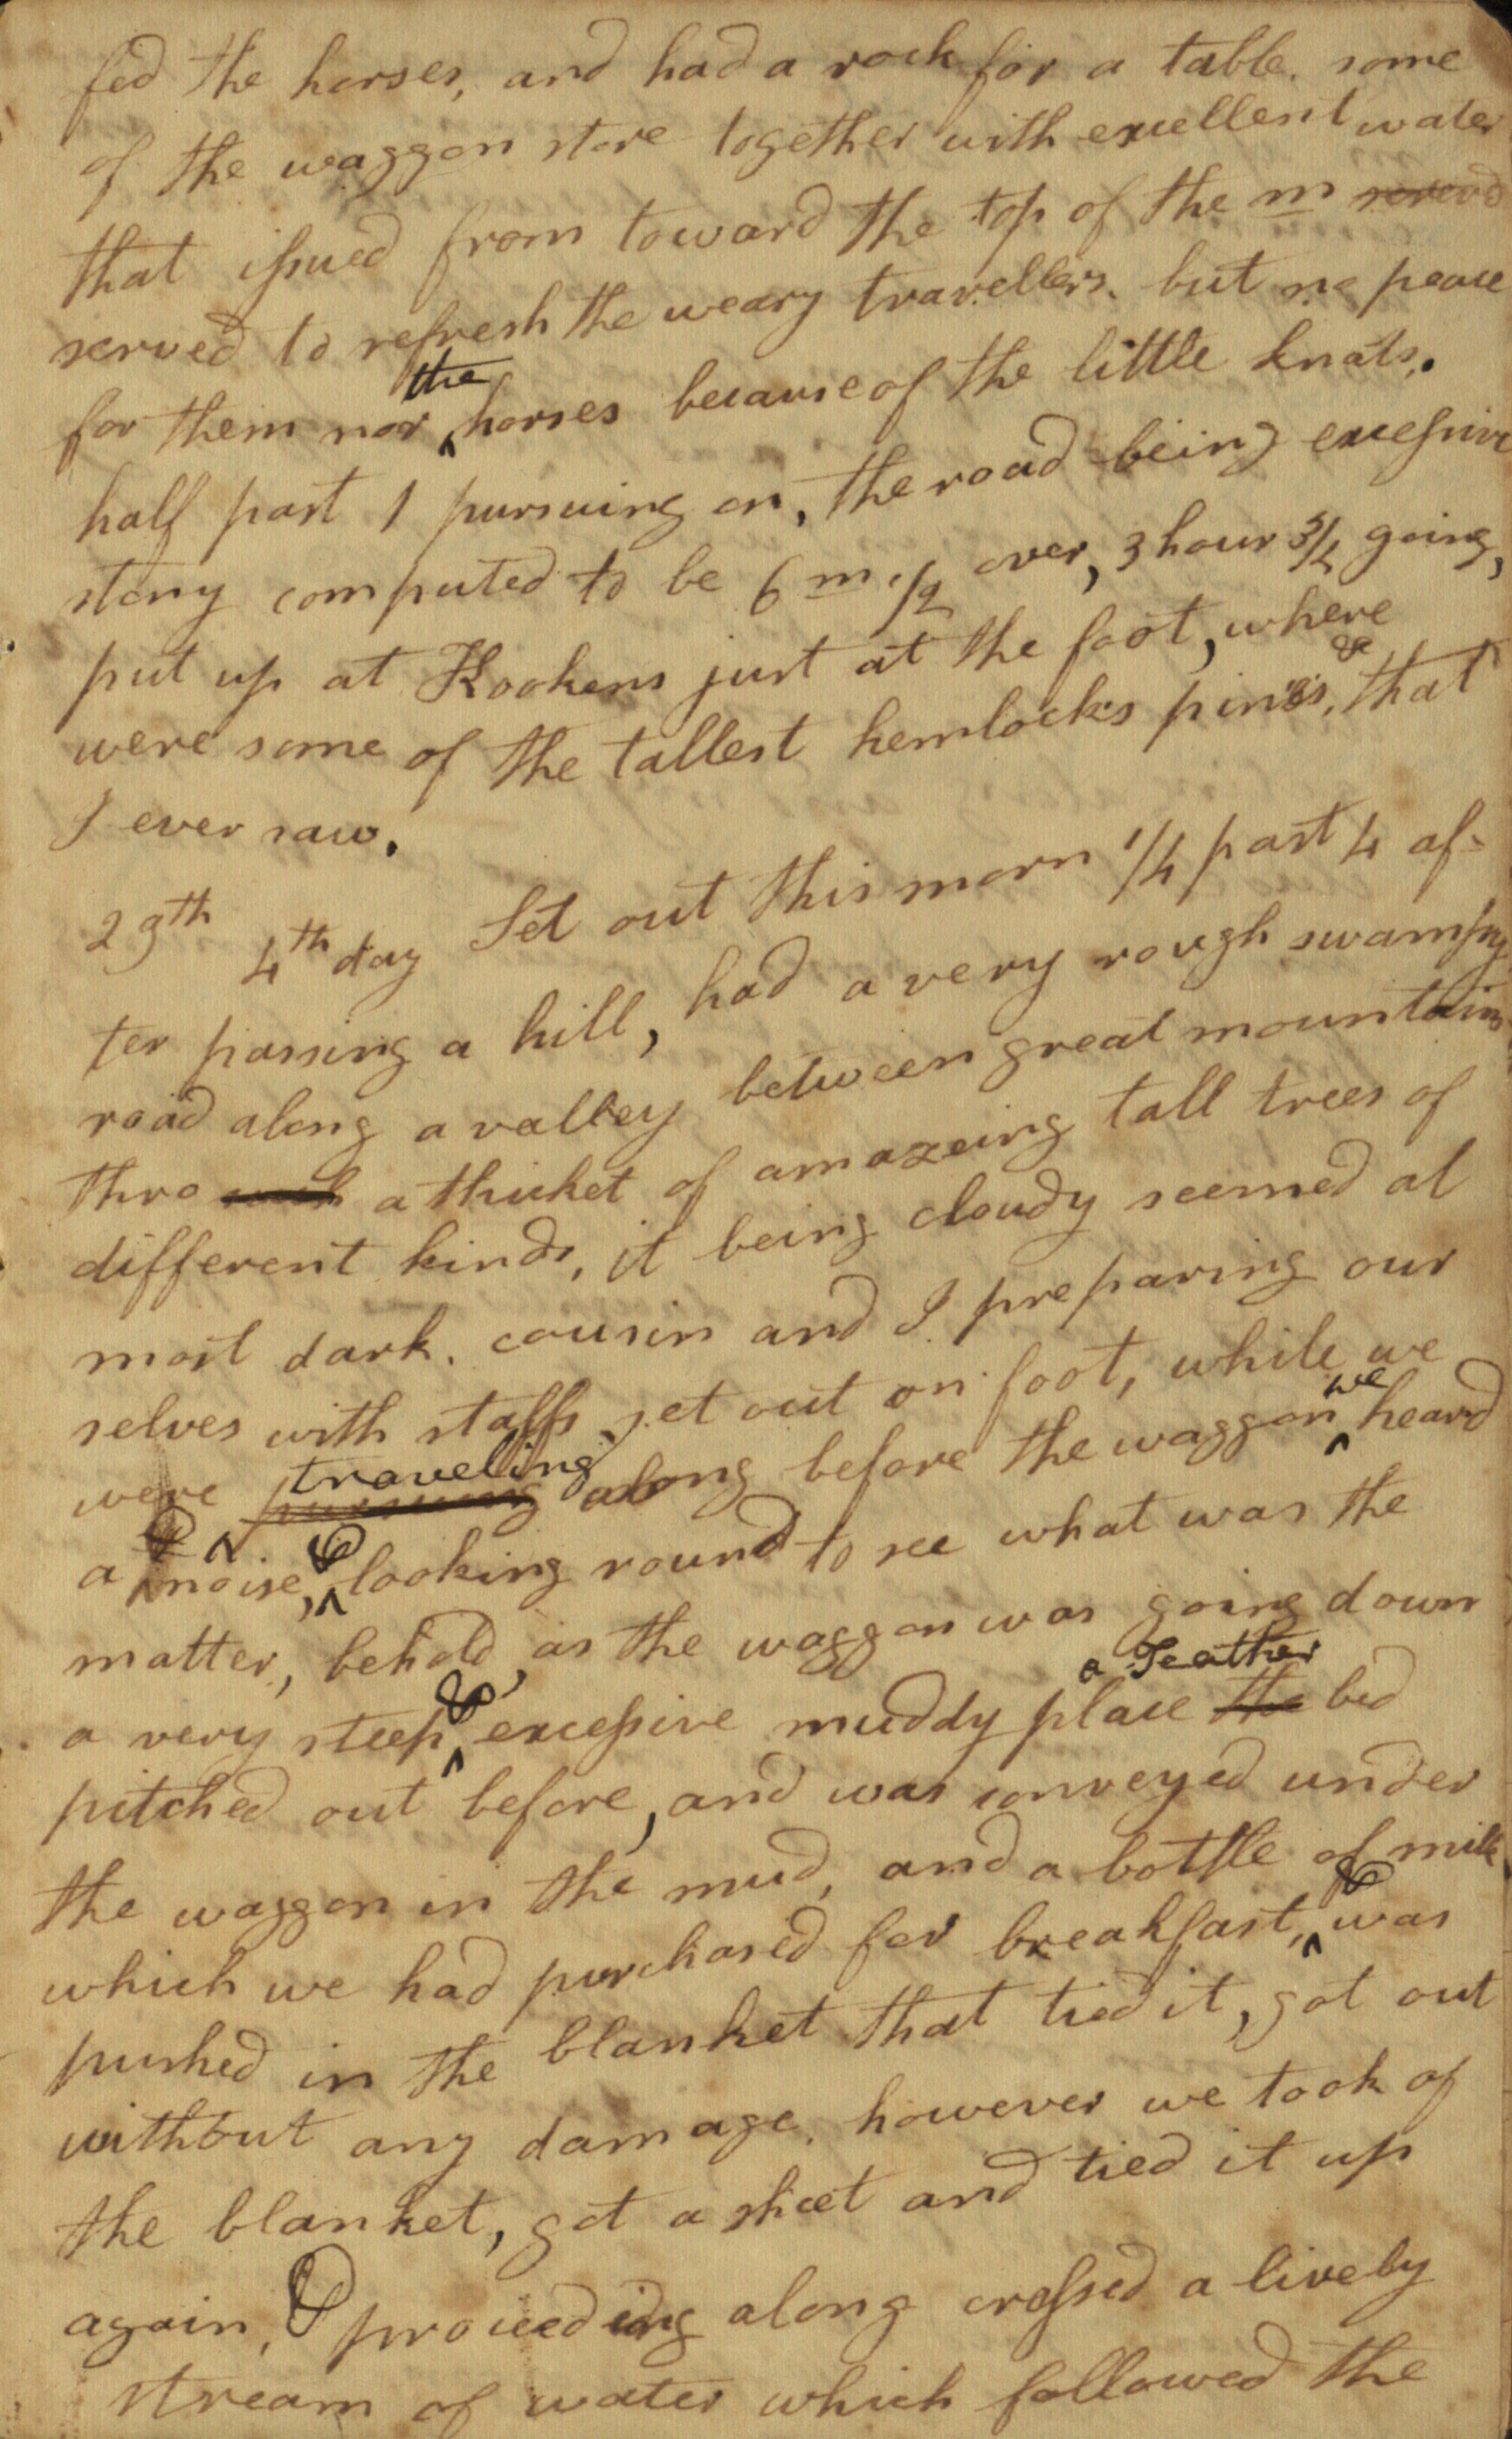 fed the horses, and had a rock for a table. some
of the waggon store together with excellent water
that issued from toward the top of the m
served to refresh the weary travellers. but no peace
for them nor the horses because of the little knats.
half past 1 pursuing on, the road being excessive
stony computed to be 6 m 1/2 over, 3 hour 3/4 going,
put up at Kookens just at the foot, where
were some of the tallest hemlocks pines, & that
I ever saw.
29th 4th day Set out this morn 1/4 past 4 af=
ter passing a hill, had a very rough swampy
road along a valley between great mountains
thro a thicket of amazeing tall trees of
different kinds, it being cloudy seemed al
most dark. cousin and I preparing our
selves with staffs set out on foot, while we
were traveling along before the waggon we heard
a noise, & looking round to see what was the
matter, behold, as the waggon was going down
a very steep & excessive muddy place the a Feather bed
pitched out before, and was conveyed under
the waggon in the mud, and a bottle of milk
which we had purchased for breakfast, & was
pushed in the blanket that tied it, got out
without any damage. however we took of
the blanket, got a sheet and tied it up
again, & proceeding along crossed a lively
stream of water which followed the